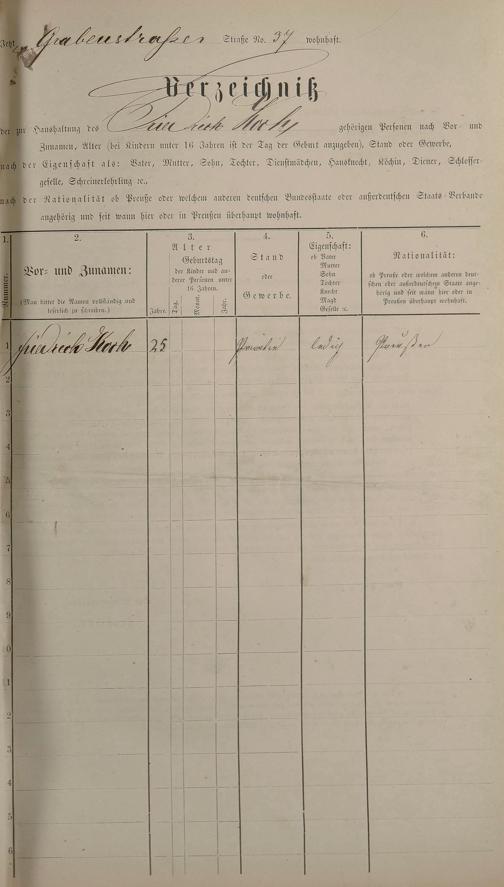 Jetzt Grabenstraßer Straße No. 37 wohnhaft.
Verzeichniß
der zur Haushaltung des Friedrich Koch gehörigen Personen nach Vor- und
Zunamen, Alter (bei Kindern unter 16 Jahren ist der Tag der Geburt anzugeben), Stand oder Gewerbe,
nach der Eigenschaft als: Vater, Mutter, Sohn, Tochter, Dienstmädchen, Hausknecht, Köchin, Diener, Schlosser-
geselle, Schreinerlehrling ꝛc.,
nach der Nationalität ob Preuße oder welchem anderen deutschen Bundesstaate oder außerdeutschen Staats-Verbande
angehörig und seit wann hier oder in Preußen überhaupt wohnhaft.
1. 2. 3. 4. 5. 6.
Nummer.
Vor- und Zunamen:
(Man bittet die Namen vollständig und
leserlich zu schreiben.)
Alter
Geburtstag
der Kinder und an-
derer Personen unter
16 Jahren.
Jahre. Tag. Monat. Jahr.
Stand
oder
Gewerbe.
Eigenschaft:
ob Vater
Mutter
Sohn
Tochter
Knecht
Magd
Geselle ꝛc.
Nationalität:
ob Preuße oder welchem anderen deut-
schen oder außerdeutschen Staate ange-
hörig und seit wann hier oder in
Preußen überhaupt wohnhaft.
1 Friedrich Koch 25 ledig Preußen
2
3
4
5
6
7
8
9
0
1
2
3
4
5
6